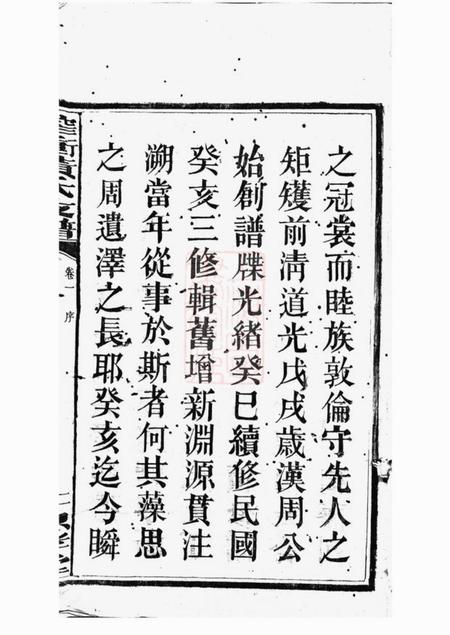 之冠裳而睦族敦倫守先人之
矩矱前淸道光戊戌歲漢周公
始創譜牒光緒癸巳續修民國
癸亥三修輯舊增新淵源貫注
溯當年從事於斯者何其藻思
之周遺澤之長耶癸亥迄今瞬
氏支譜
卷一
序